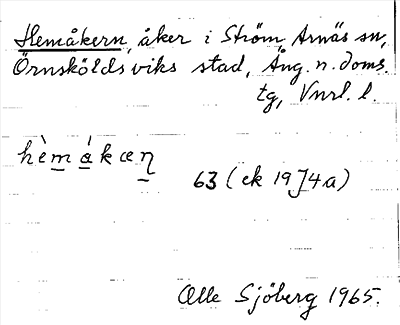 Hemåkern, åker i Ström, Arnäs sn,
Örnsköldsviks stad, Ång. n. doms.
tg, Vnrl. l.
hèm̲á̲kæn̲
63 (ek 19J4a)
Olle Sjöberg 1965.